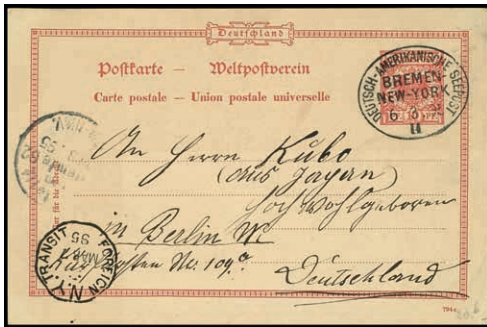 Deutschland
Postkarte — Weltpostverein
Carte postale — Union postale universelle
DEUTSCH-AMERIKANISCHE SEEPOST
BREMEN-
NEW-YORK
II
An Herrn Kubo
(aus Japan)
Hochwohlgeboren
in Berlin W.
No: 109a
Deutschland
N.Y. TRANSIT FOREIGN
95